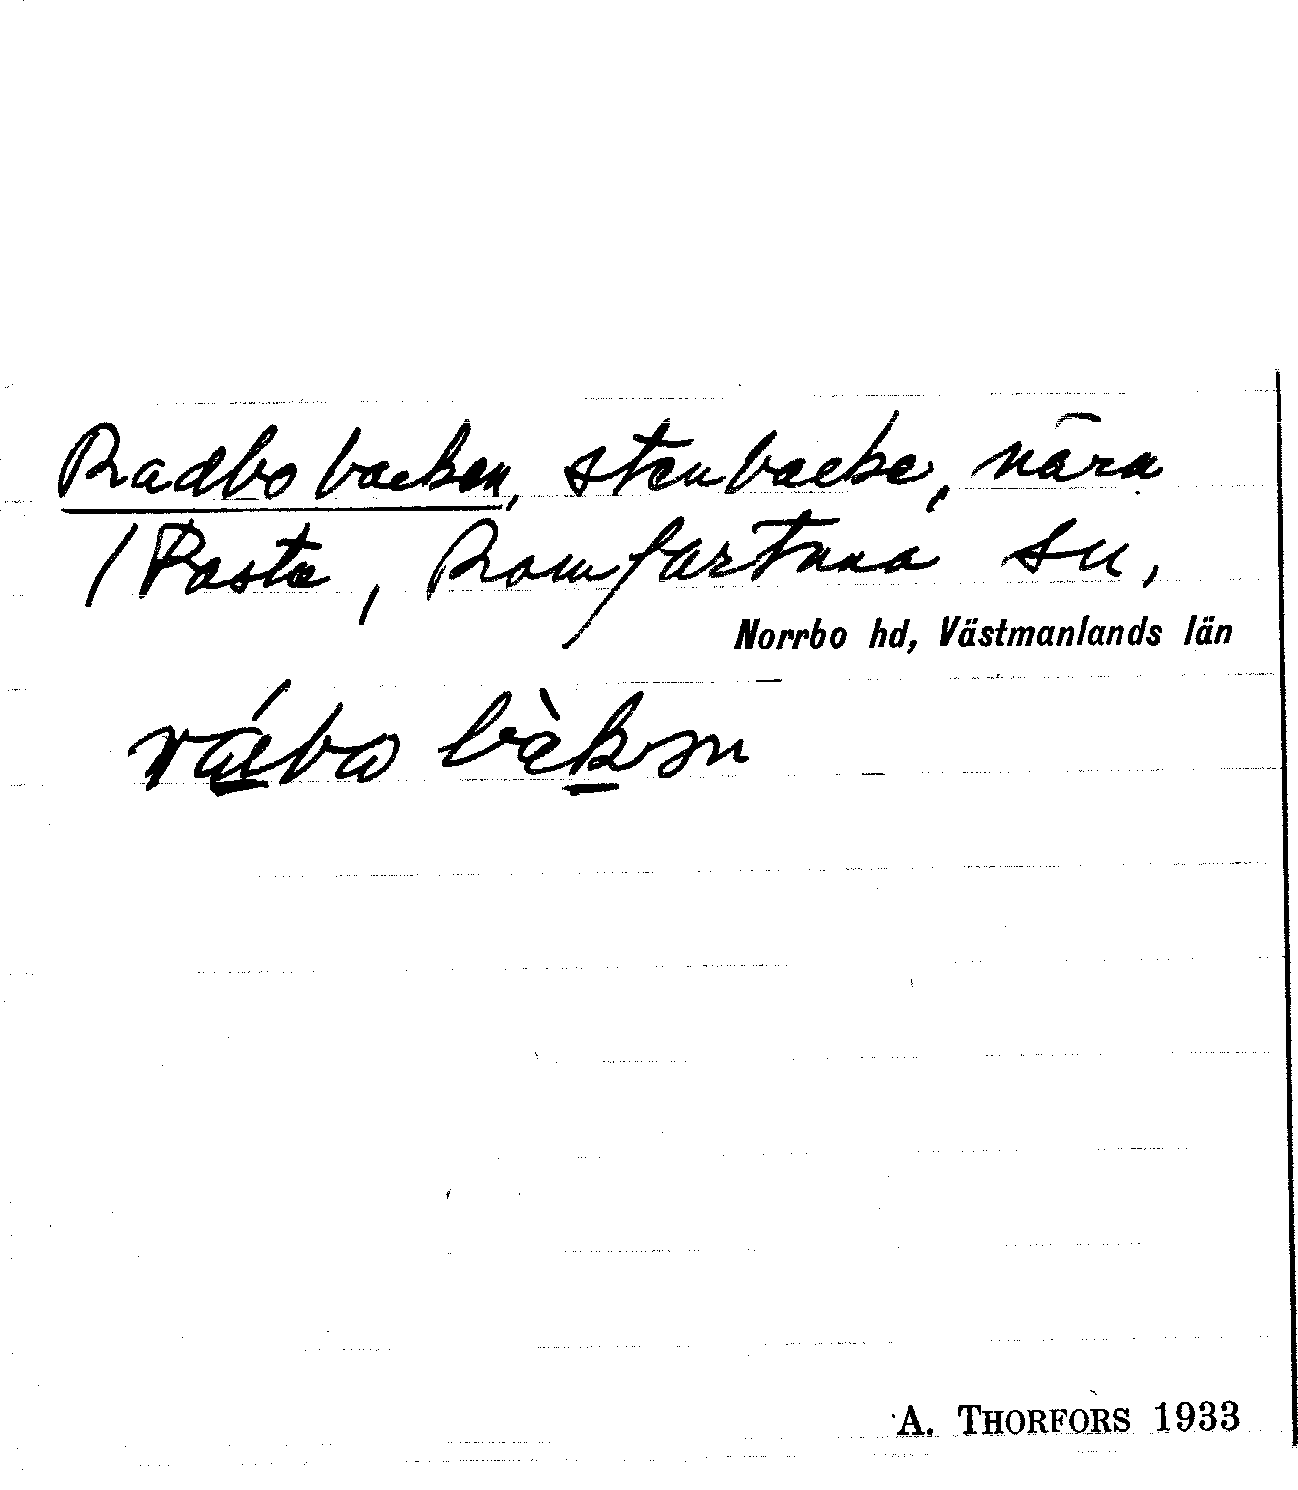 Radbobacken, stenbacke, nära
/ Rasta, Romfartuna sn,
Norrbo hd, Västmanlands län
A. THORFORS 1933